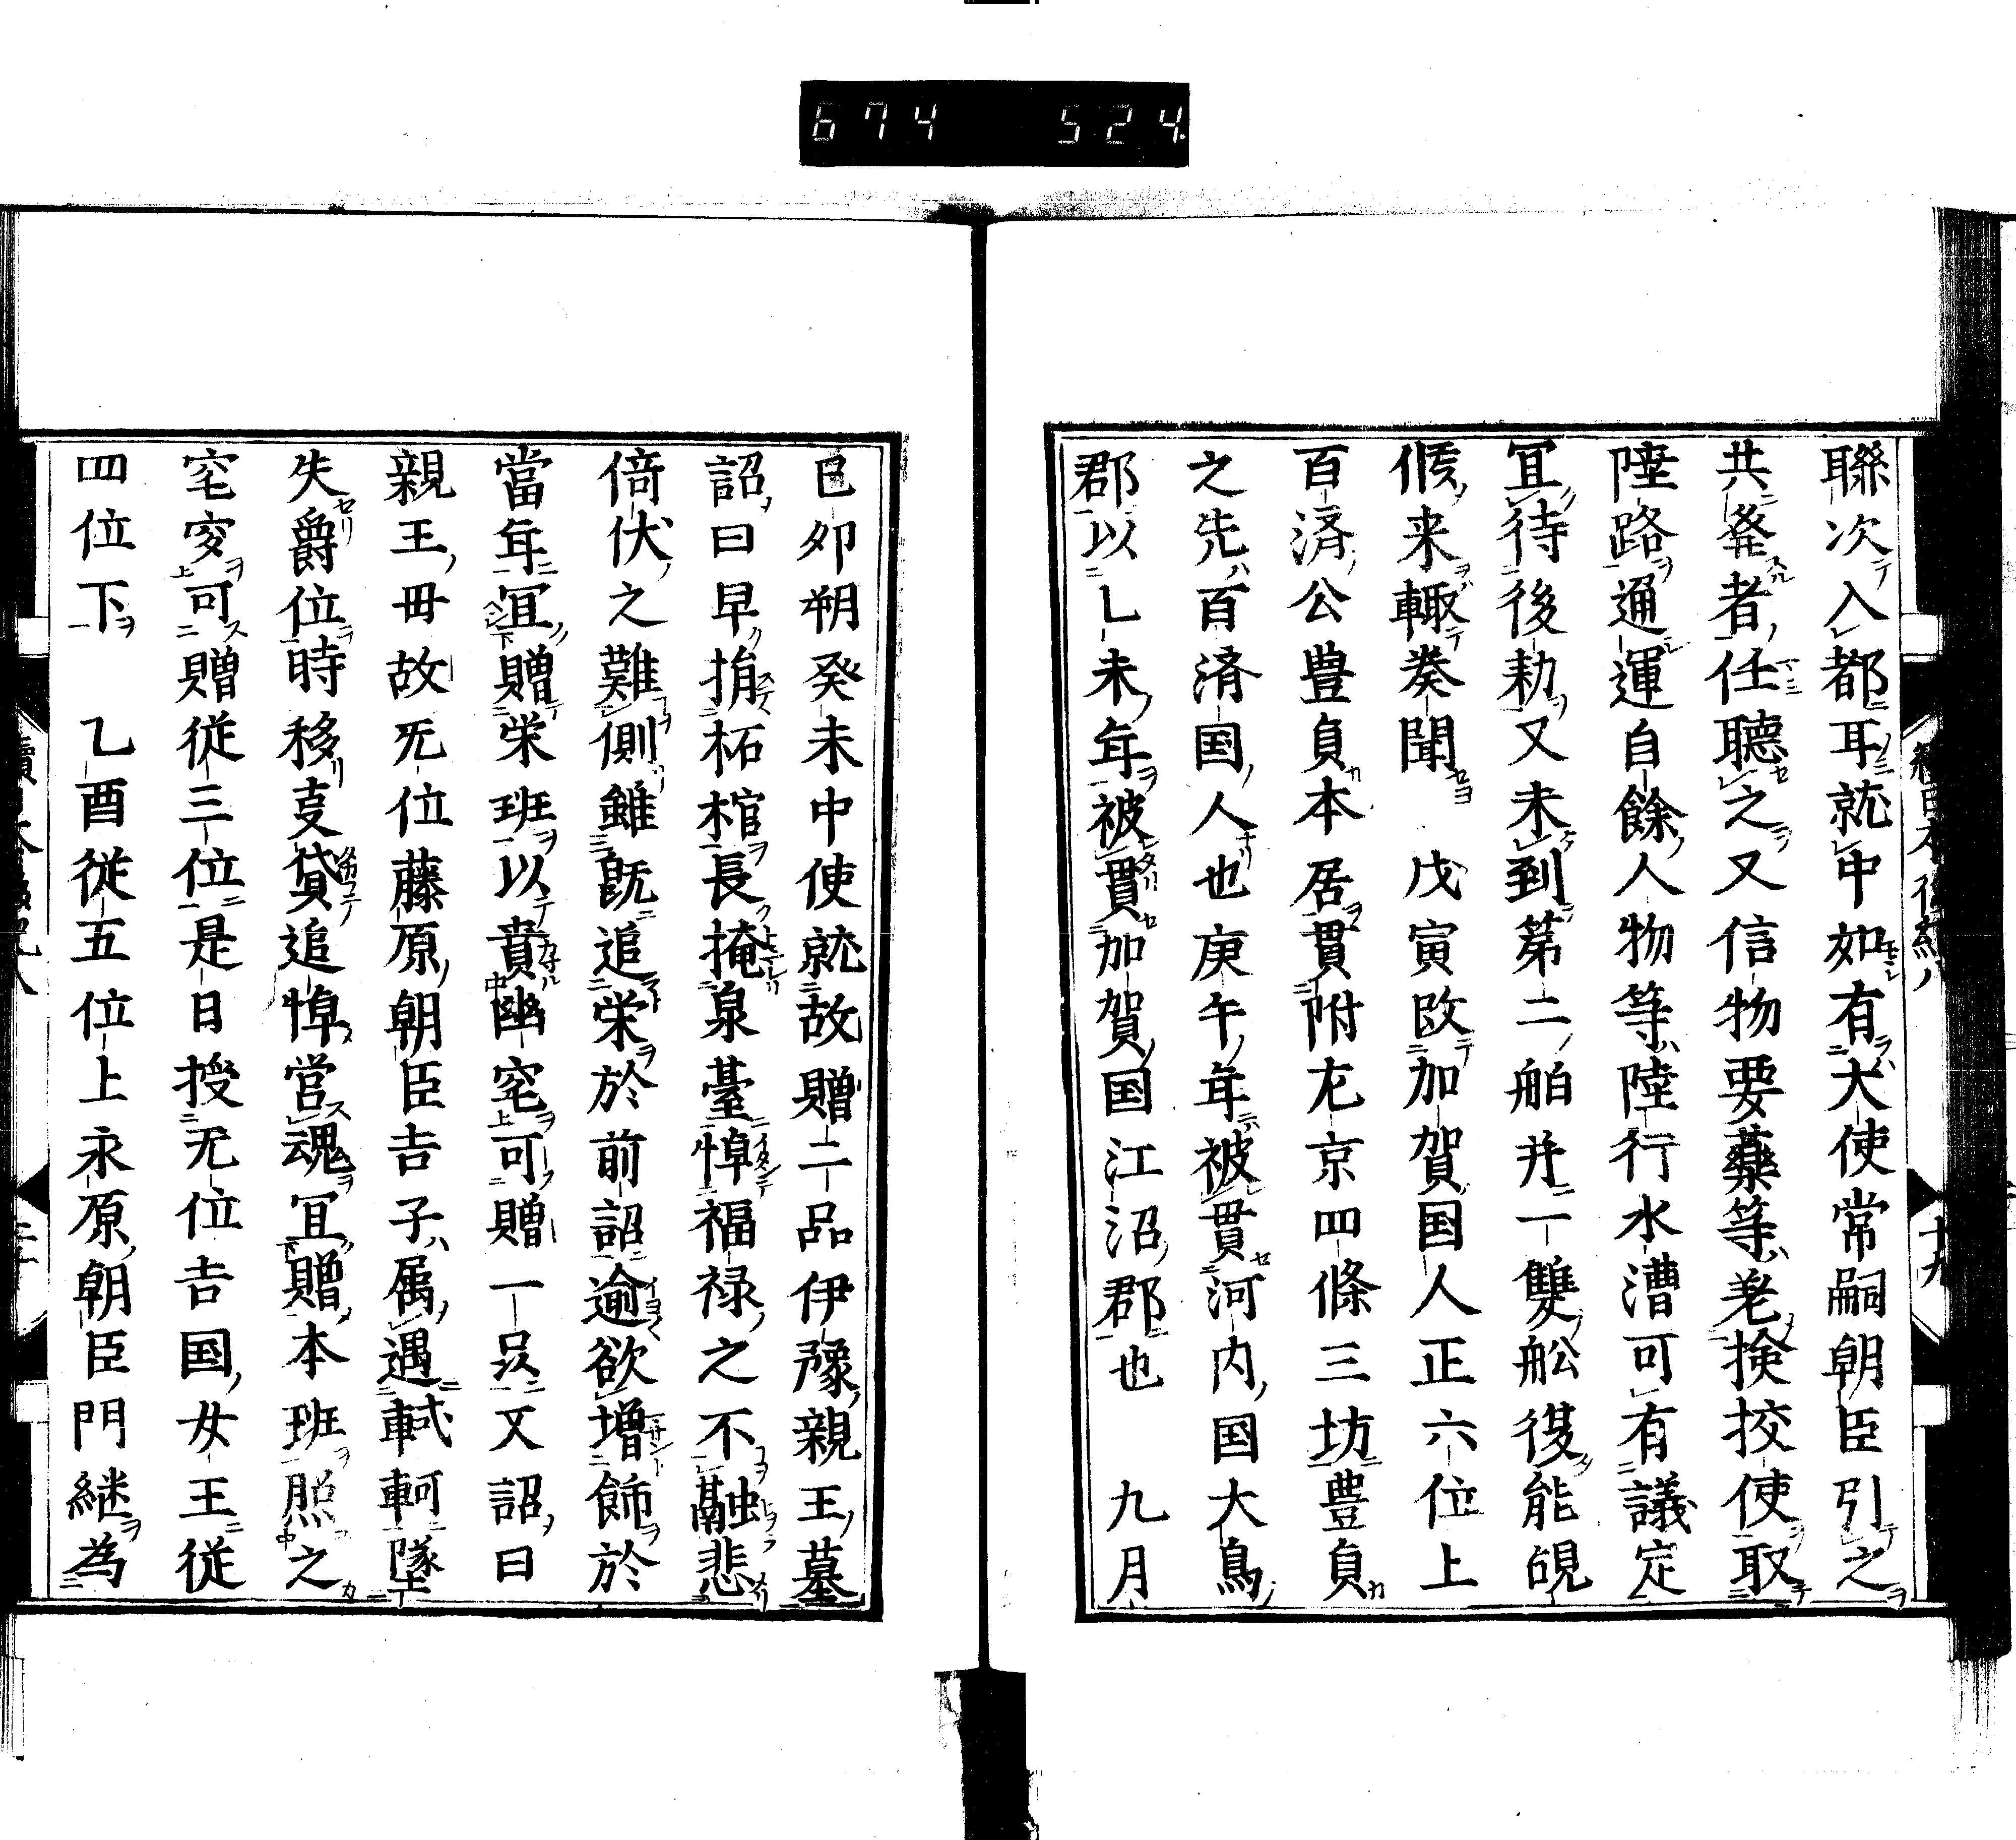 674 524
聯次入都耳就中如有大使常嗣朝臣引之
共發者任聽之又信物要藥等差撿挍使取
陸路遞運自餘人物等陸行水漕可有議定
冝待後勅又未到第二舶并一雙舩復能䚕
候来輙奏聞 戊寅改加賀国人正六位上
百済公豊貟本居貫附尤京四條三坊豊貟
之先百済国人也庚午年被貫河内国大鳥
郡以乚未年被貫加賀国江沼郡也 九月
巳夘朔癸未中使就故贈二品伊豫親王墓
詔曰早捐柘棺長掩泉臺悼福禄之不融悲
倚伏之難側雖旣追栄於前詔逾欲増飾於
當年冝贈栄班以賁幽穸可贈一品又詔曰
親王毋故旡位藤原朝臣吉子属遇轗軻墜
失爵位時移叓貸追悼営魂冝贈本班照之
窀穸可贈従三位是日授无位吉国女王従
四位下 乙酉従五位上永原朝臣門継為